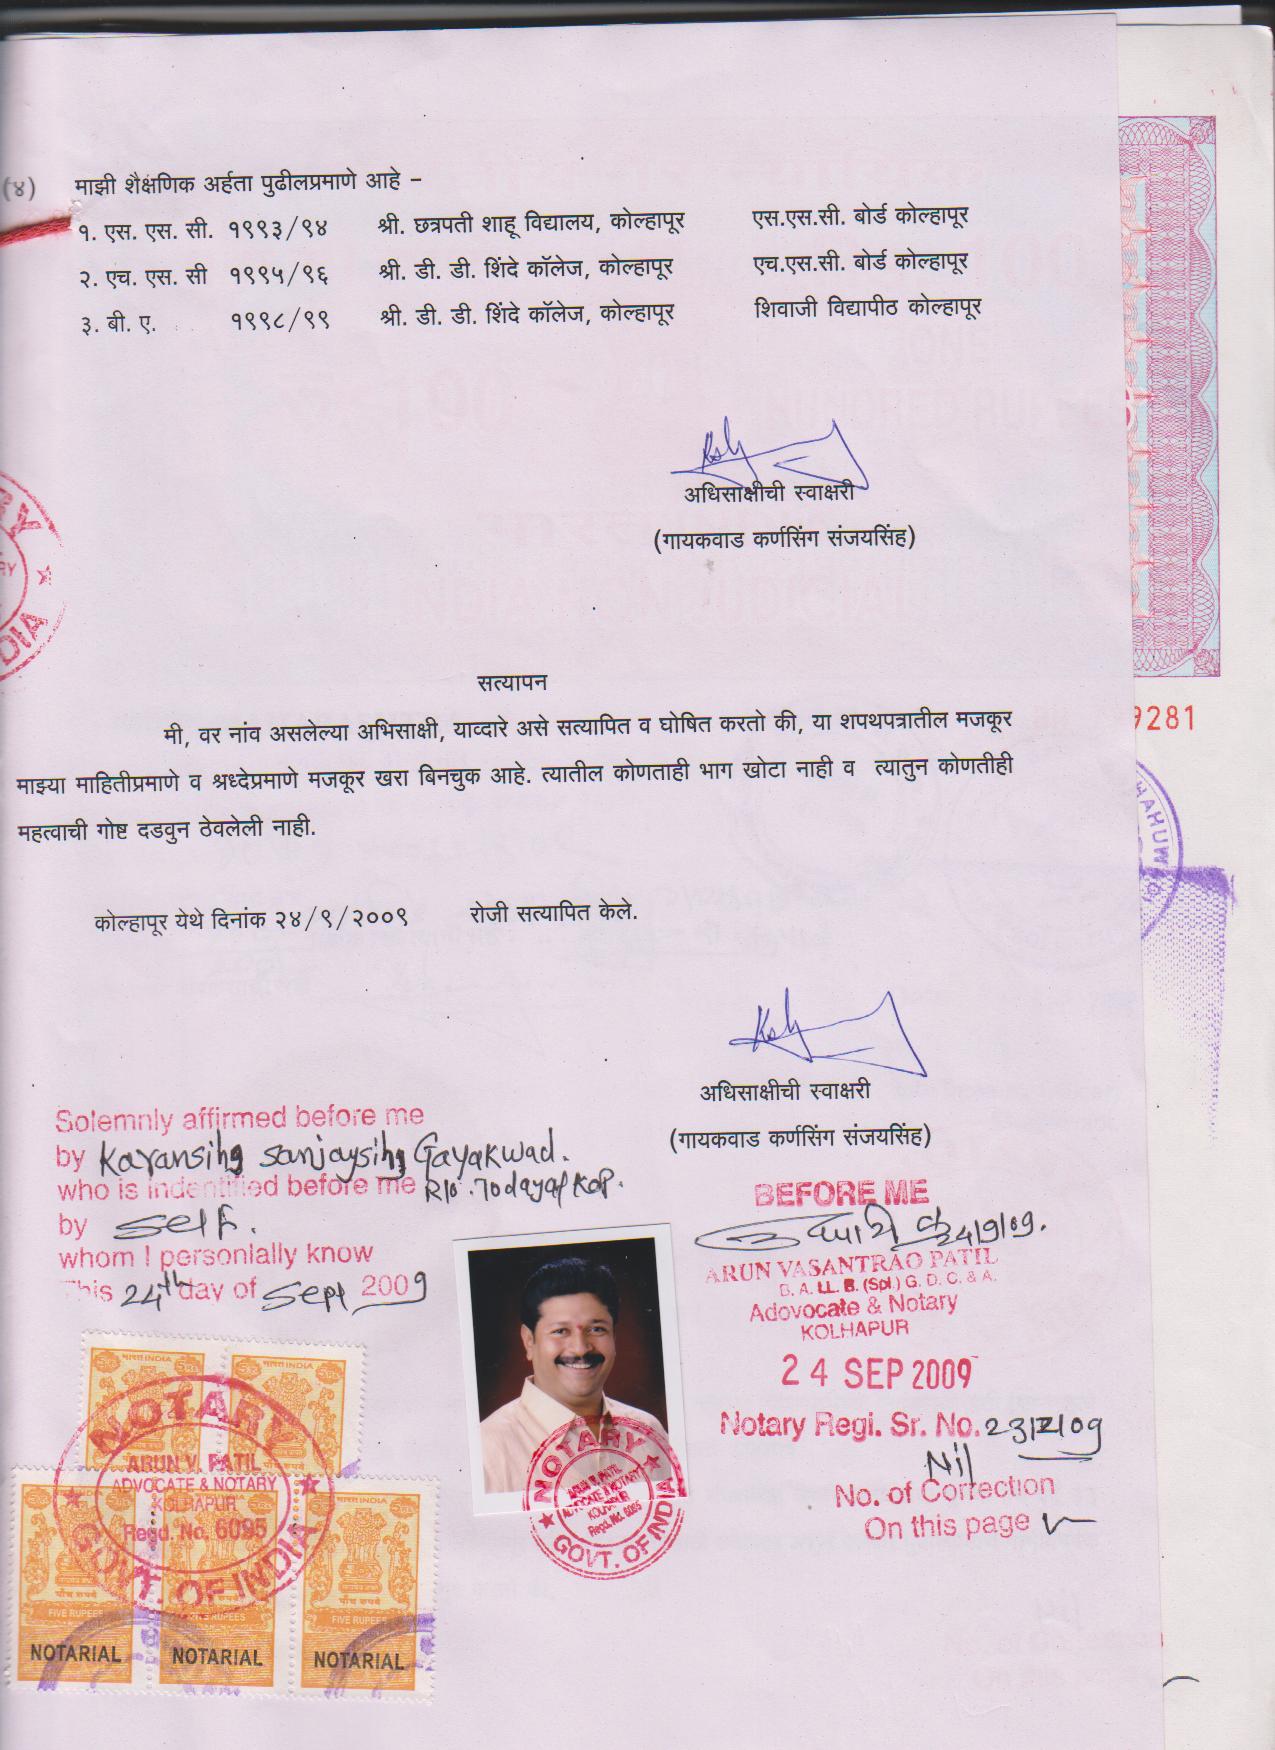 (४) माझी शैक्षणिक अर्हता पुढीलप्रमाणे आहे –
१. एस. एस. सी. १९९३/९४ श्री. छत्रपती शाहू विद्यालय, कोल्हापूर एस.एस.सी. बोर्ड कोल्हापूर
२. एच. एस. सी १९९५/९६ श्री. डी. डी. शिंदे कॉलेज, कोल्हापूर एच.एस.सी. बोर्ड कोल्हापूर
३. बी. ए. १९९८/९९ श्री. डी. डी. शिंदे कॉलेज, कोल्हापूर शिवाजी विद्यापीठ कोल्हापूर
अधिसाक्षीची स्वाक्षरी
(गायकवाड कर्णसिंग संजयसिंह)
सत्यापन
9281
मी, वर नांव असलेल्या अभिसाक्षी, याव्दारे असे सत्यापित व घोषित करतो की, या शपथपत्रातील मजकूर
माझ्या माहितीप्रमाणे व श्रध्देप्रमाणे मजकूर खरा बिनचुक आहे. त्यातील कोणताही भाग खोटा नाही व त्यातुन कोणतीही
महत्वाची गोष्ट दडवुन ठेवलेली नाही.
कोल्हापूर येथे दिनांक २४/९/२००९ रोजी सत्यापित केले.
अधिसाक्षीची स्वाक्षरी
(गायकवाड कर्णसिंग संजयसिंह)
Solemnly affirmed before me
by Karansing Sanjaysing Gayakwad.
who is indentified before me
by Self.
whom I personially know
This 24th day of Sept 2009
BEFORE ME
24/9/09.
ARUN VASANTRAO PATIL
B. A. LL. B. (Spl.) G. D. C. & A.
Adovocate & Notary
KOLHAPUR
24 SEP 2009
Notary Regi. Sr. No.
Nil
No. of Correction
On this page
भारत INDIA
भारत INDIA
NOTARY
ARUN V. PATIL
ADVOCATE & NOTARY
KOLHAPUR
Regd. No. 6095
GOVT. OF INDIA
पाँच रुपये
FIVE RUPEES
FIVE RUPEES
FIVE RUPEES
NOTARIAL
NOTARIAL
NOTARIAL
NOTARY
ARUN V. PATIL
ADVOCATE & NOTARY
KOLHAPUR
Regd. No. 6095
GOVT. OF INDIA